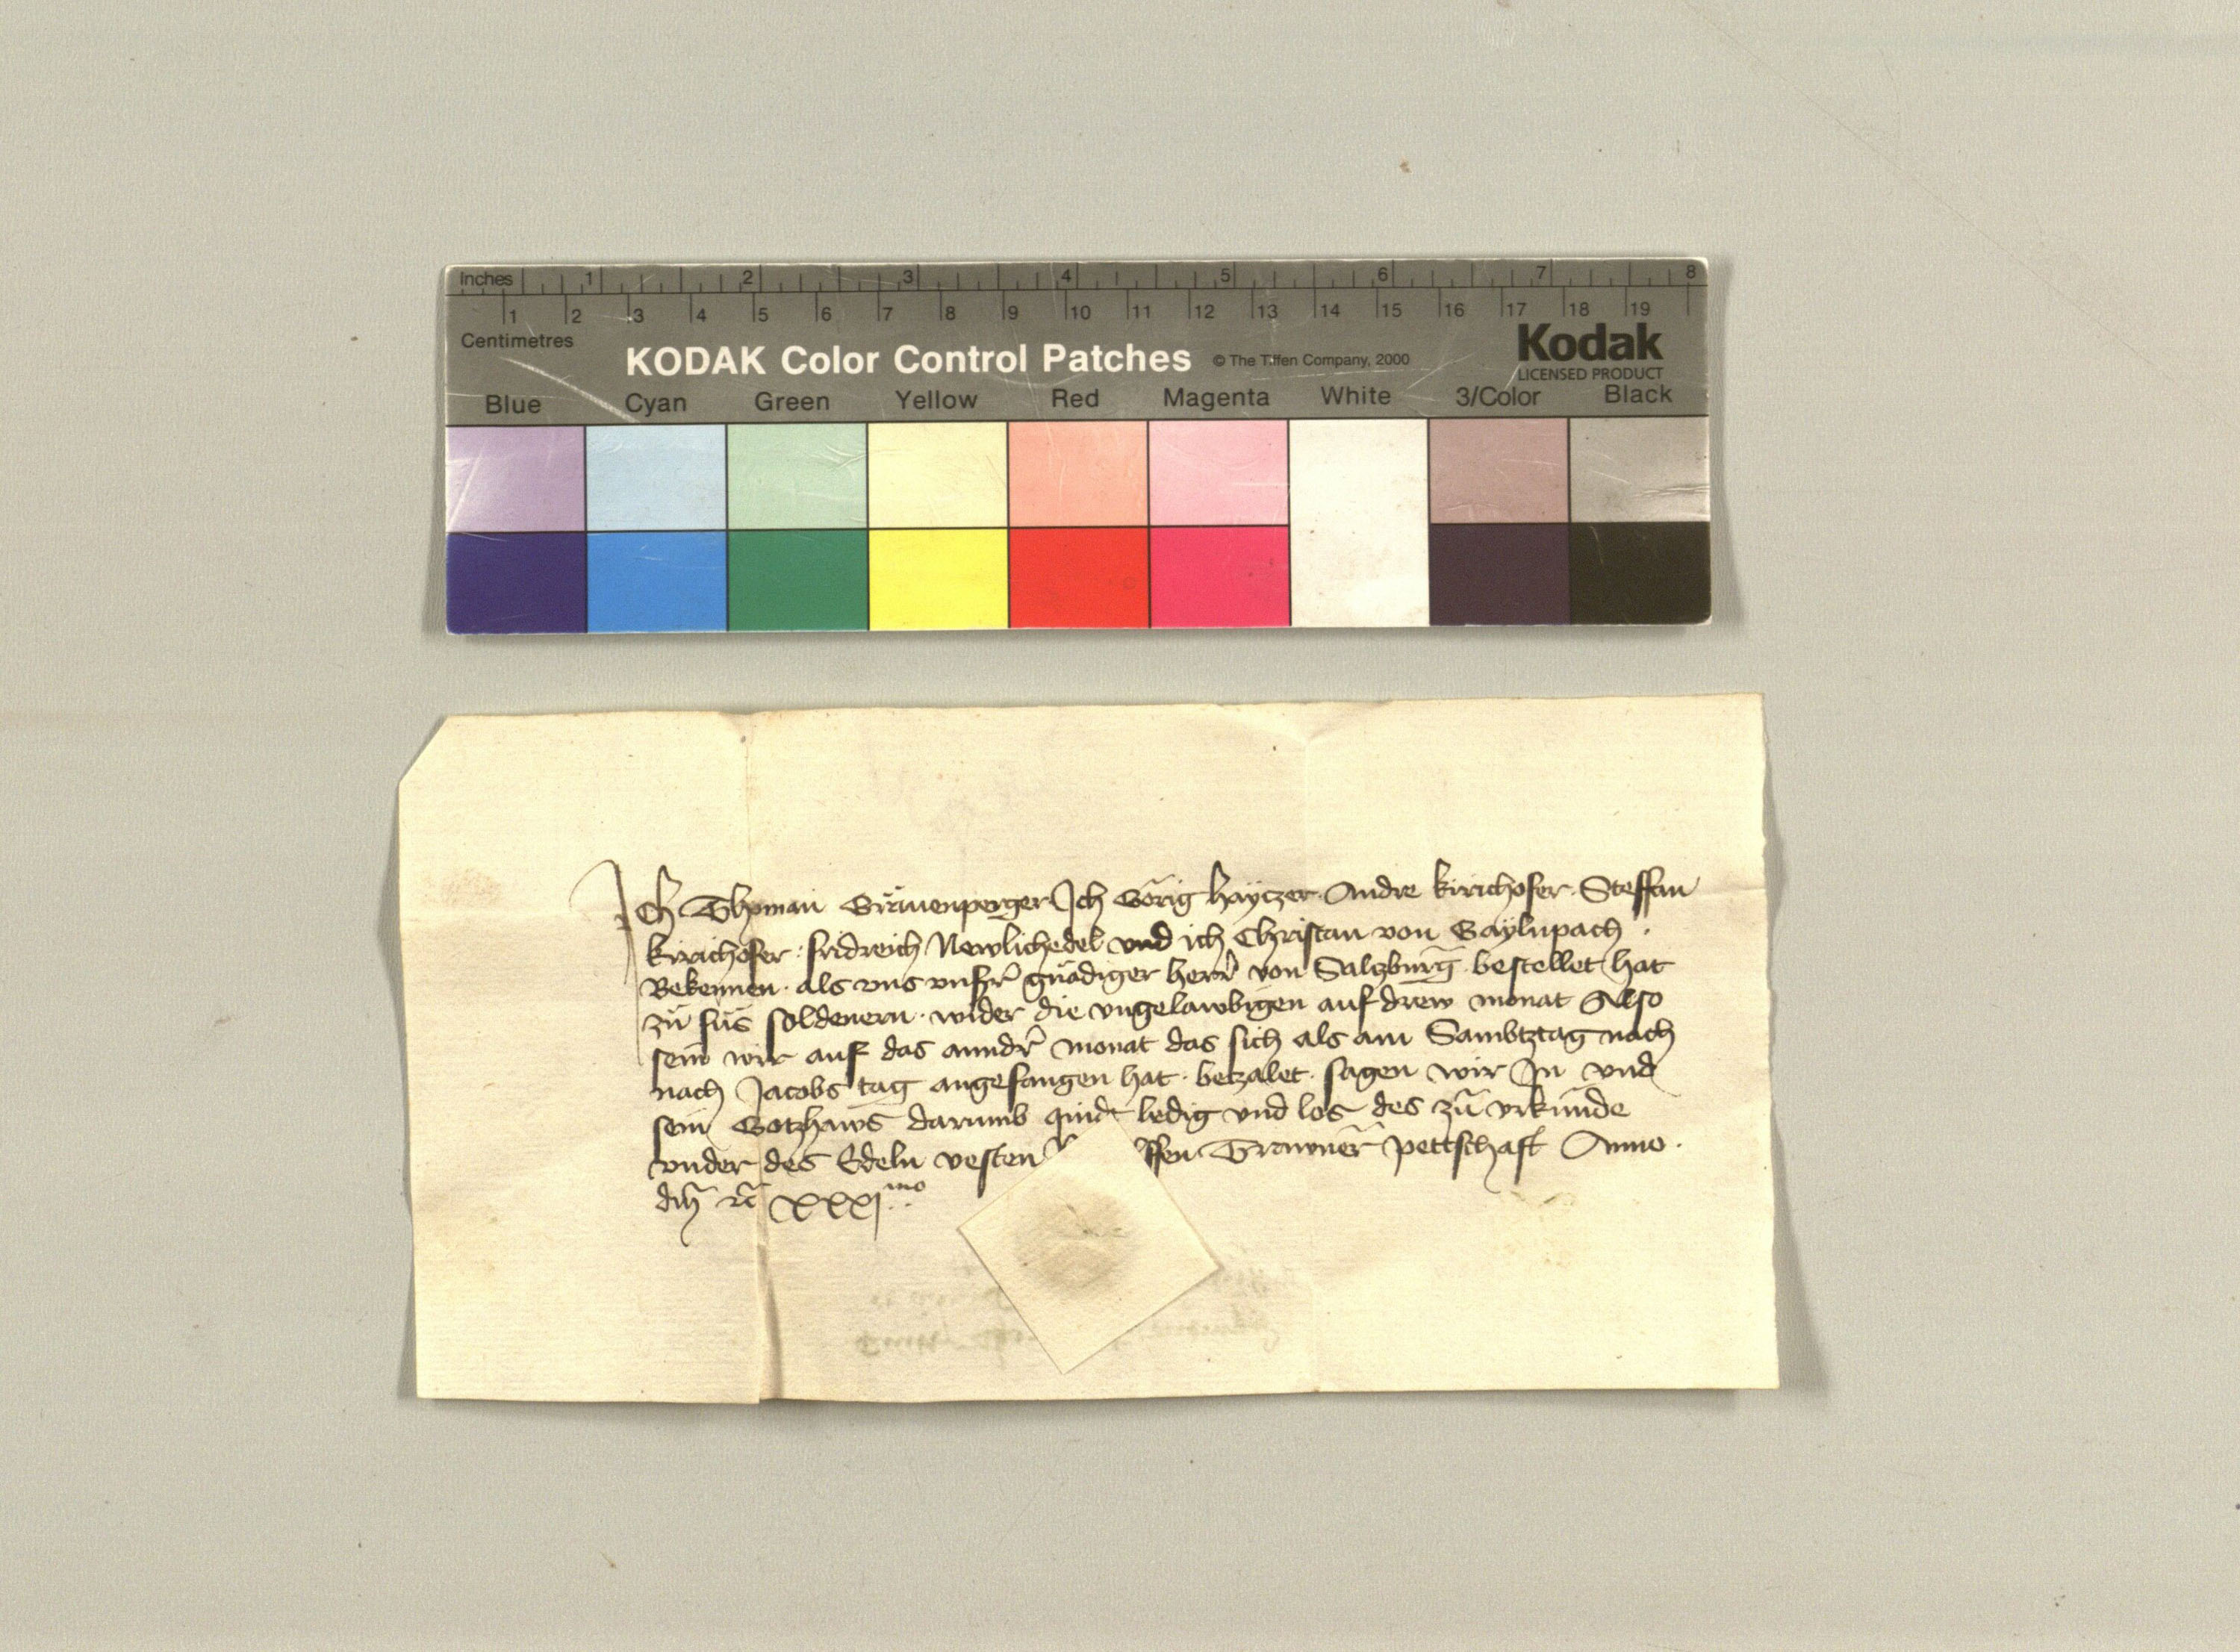 Inches 1 2 3 4 5 6 7 8
1 2 3 4 5 6 7 8 9 10 11 12 13 14 15 16 17 18 19
Centimetres
KODAK Color Control Patches © The Tiffen Company, 2000 Kodak
LICENSED PRODUCT
Blue Cyan Green Yellow Red Magenta White 3/Color Black
Ich Thoman Gräuenperger Ich Görig hayczer. Andre kirichofer. Steffan
kirichofer. fridreich Newlichedel vnd ich Christan von Gaylnpach.
Bekennen. als vns vnsr gnädiger herr von Salzburg. bestellet hat
zu füs soldenern. wider die vngelawbigen auf drew monat Also
sein wir auf das anndr monat das sich als am Sambtztag nach
nach Jacobs tag angefangen hat. betzalet. sagen wir In vnd
sein Gotzhaws darumb quidt ledig vnd los des zu vrkunde
vnder des Edeln vesten ffen Trawner pettschaft Anno.
dm̄ rc̄ xxxjmo